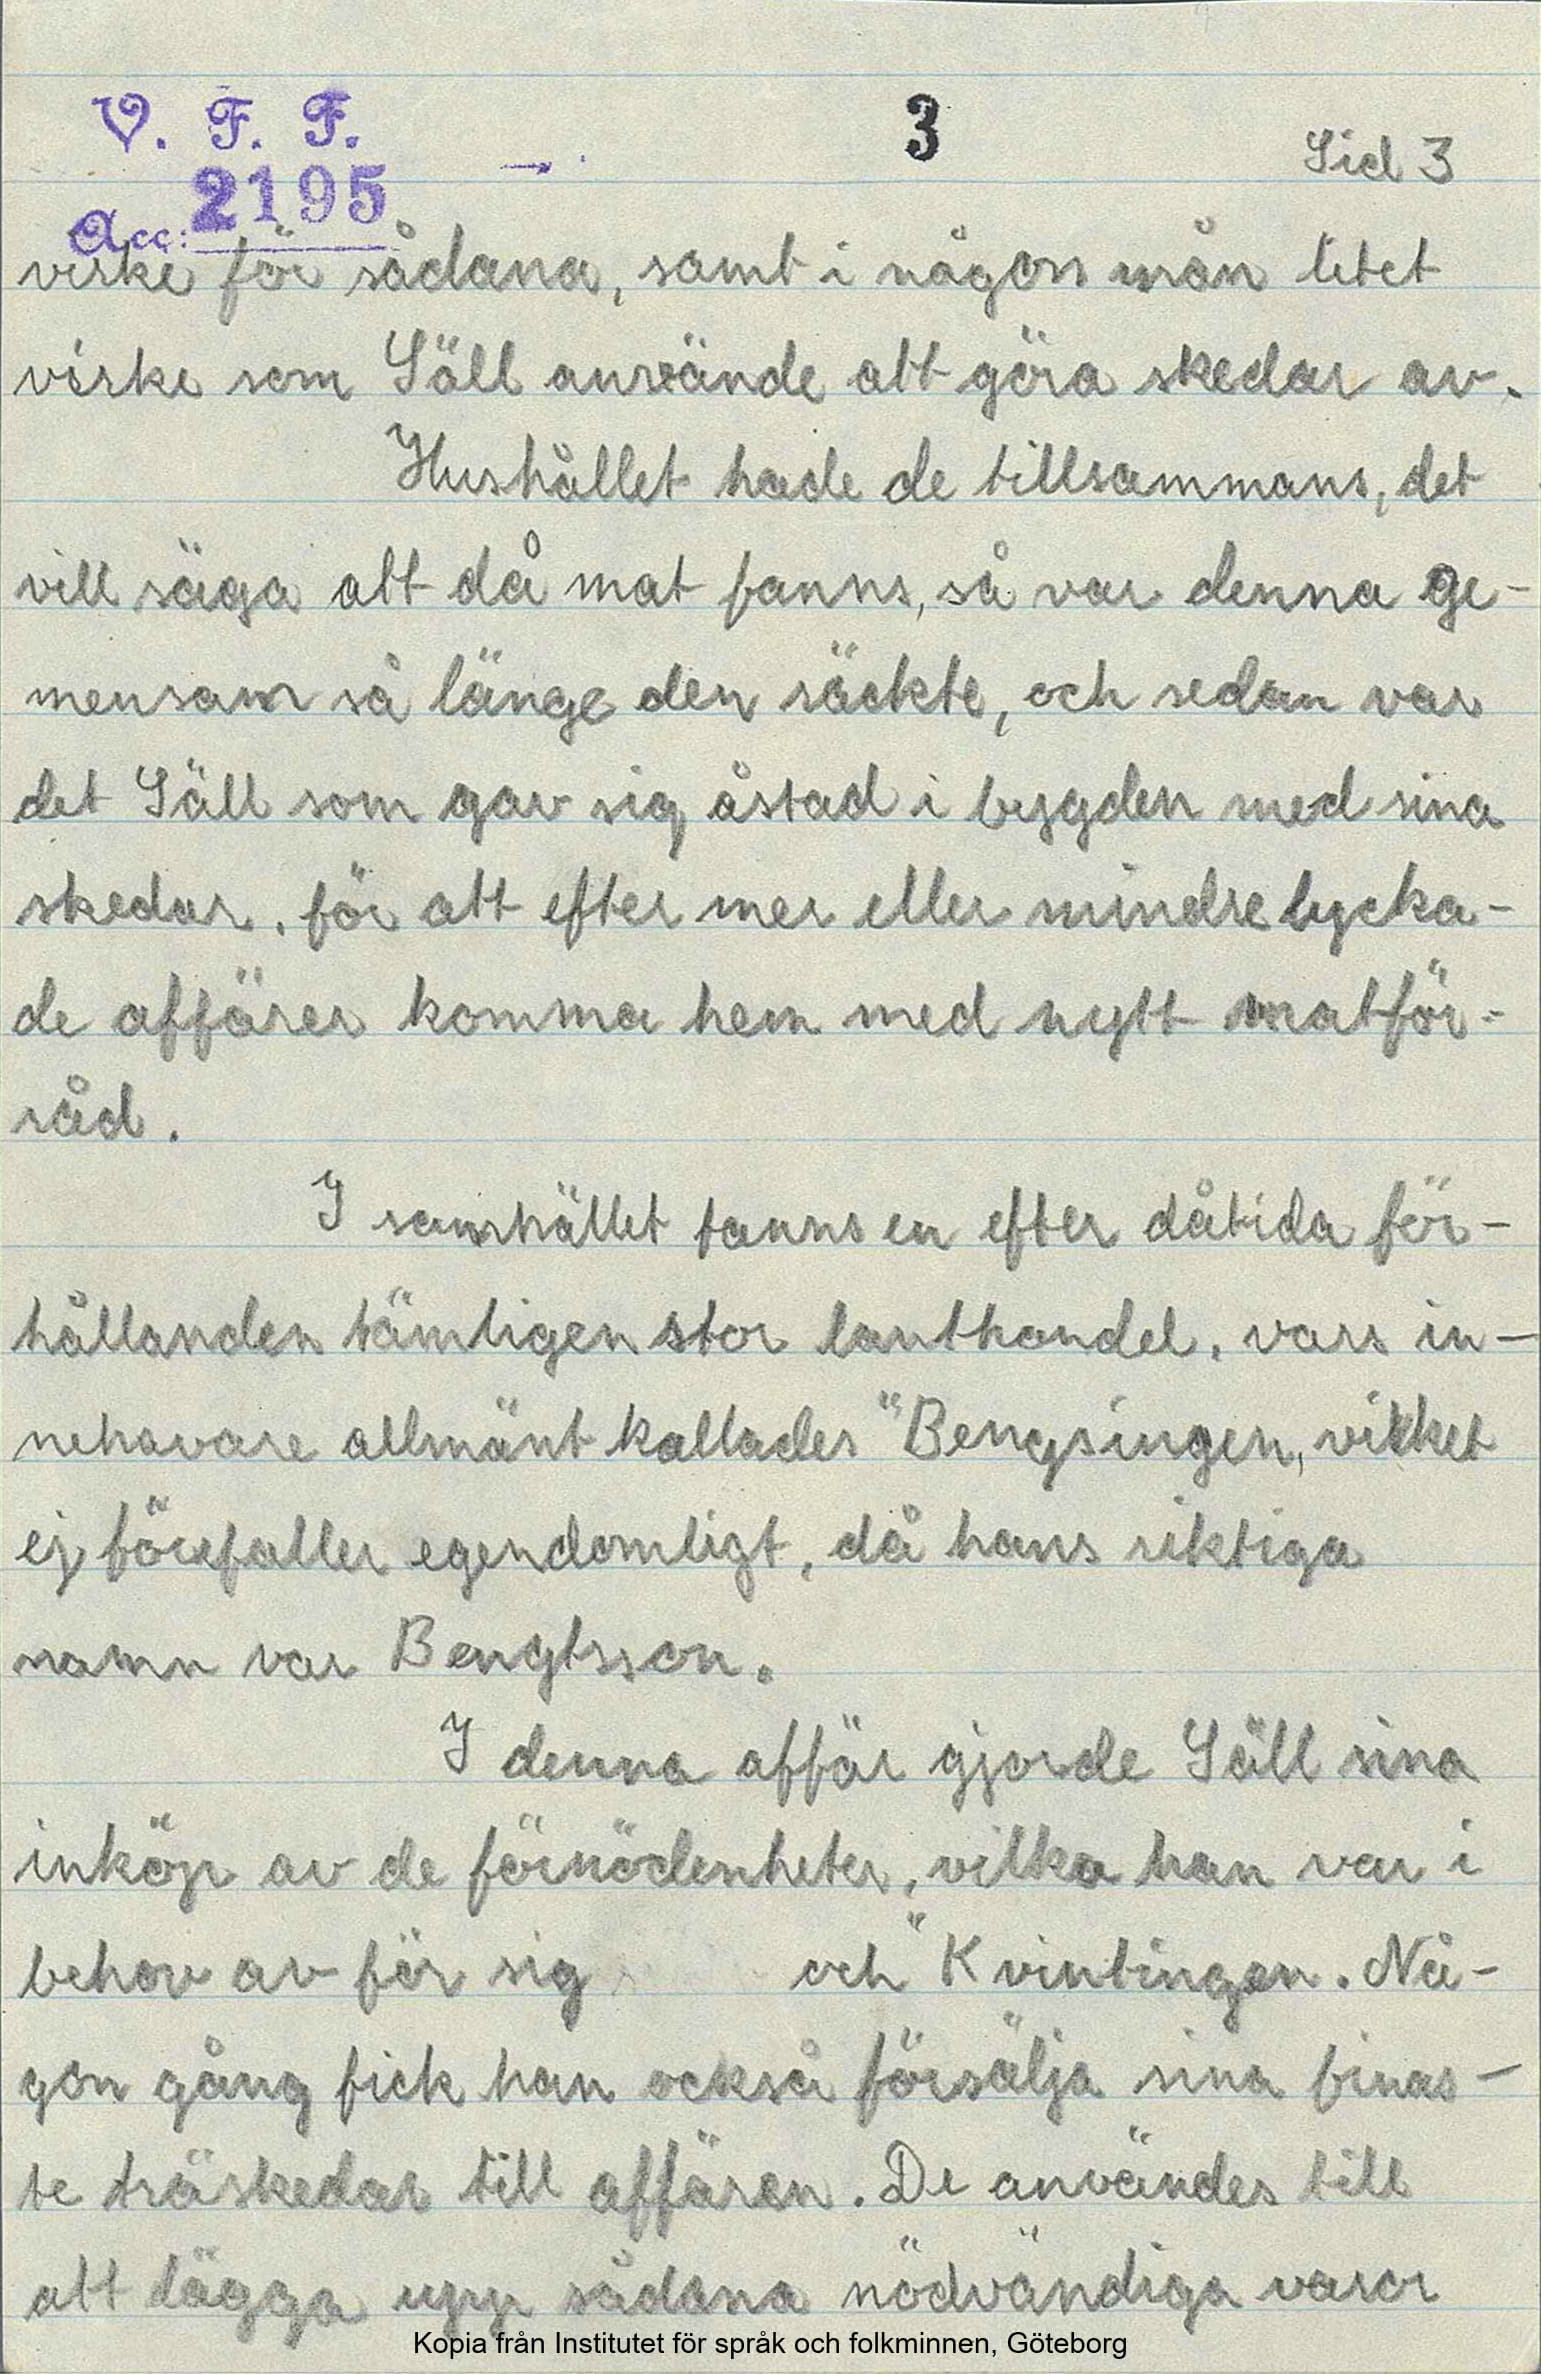 V. F. F.
3
Sid 3
Acc: 2195
virke för sådana, samt i någon mån litet
virke som Säll använde att göra skedar av.
Hushållet hade de tillsammans, det
vill säga att då mat fanns, så var denna ge-
mensam så länge den räckte, och sedan var
det Säll som gav sig åstad i bygden med sina
skedar, för att efter mer eller mindre lycka-
de affärer komma hem med nytt matför-
råd.
I samhället fanns en efter dåtida för-
hållanden tämligen stor lanthandel, vars in-
nehavare allmänt kallades "Bengsingen, vilket
ej förefaller egendomligt, då hans riktiga
namn var Bengtsson.
I denna affär gjorde Säll sina
inköp av de förnödenheter, vilka han var i
behov av för sig och "Kvintingen. Nå-
gon gång fick han också försälja sina finas-
te träskedar till affären. De användes till
att lägga upp sådana nödvändiga varor
Kopia från Institutet för språk och folkminnen, Göteborg